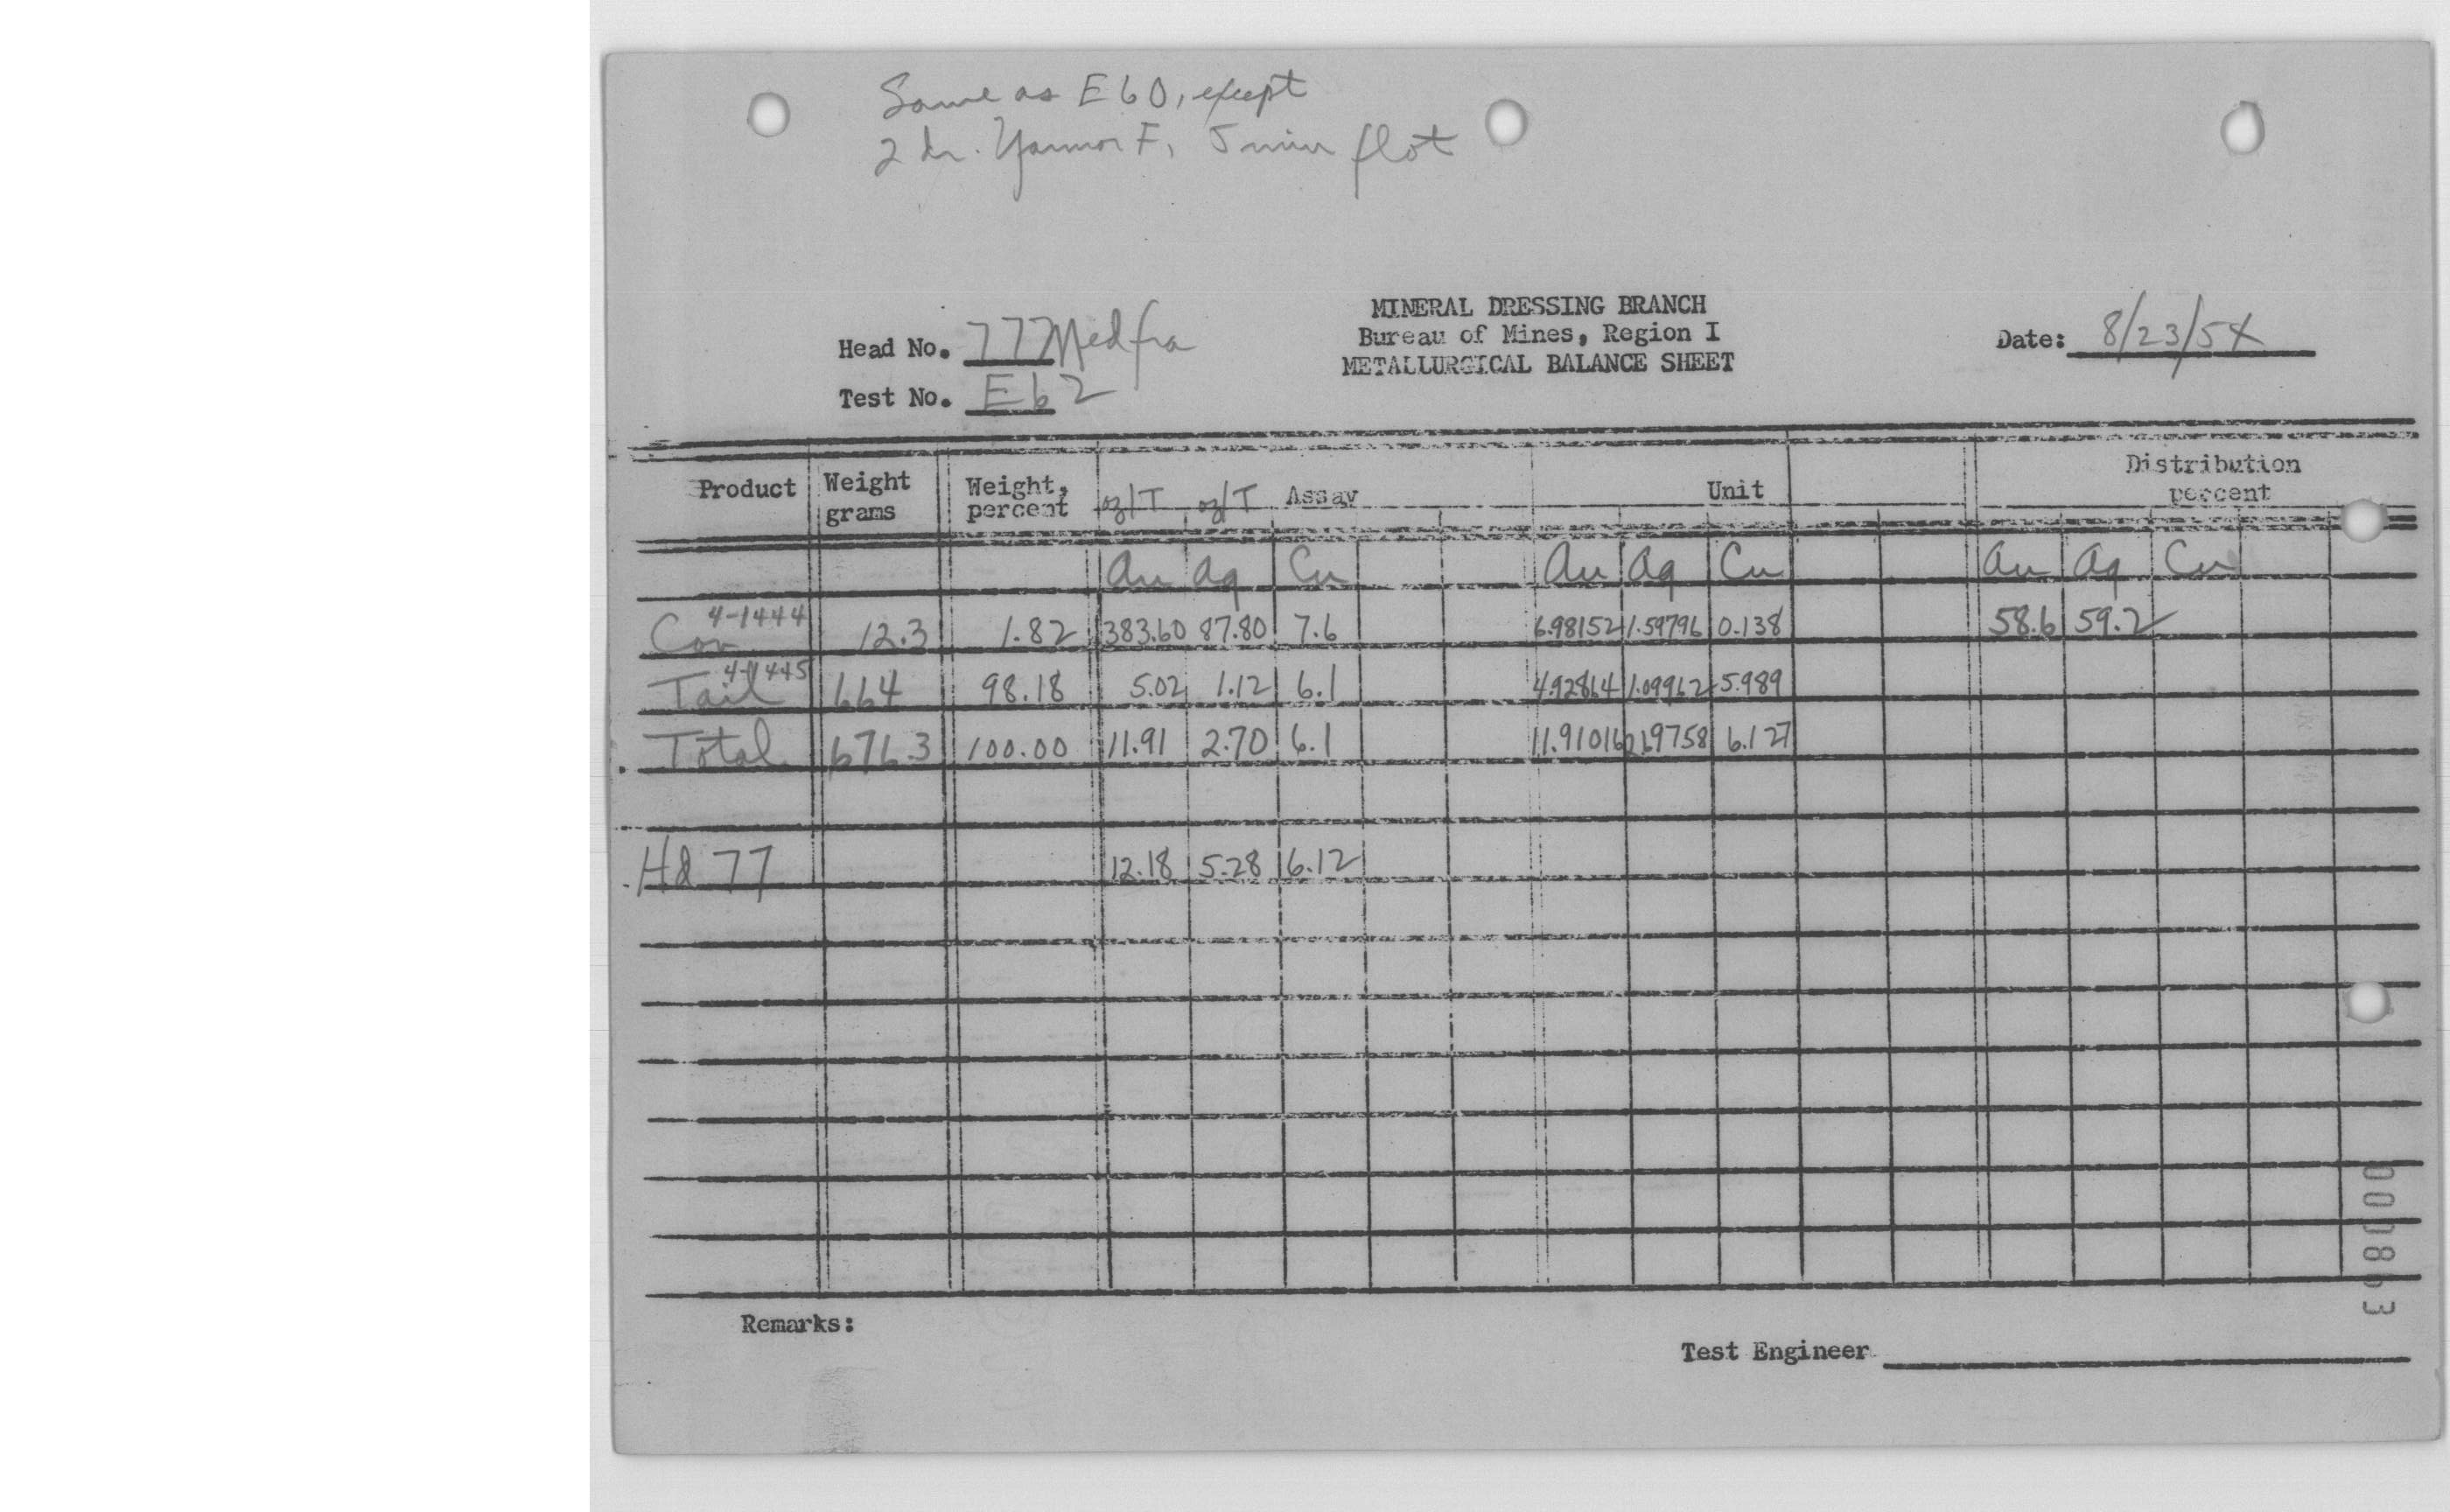 Same as E60, except
2 dr. Yarmor F, 5 min flot
MINERAL DRESSING BRANCH
Bureau of Mines, Region I
METALLURGICAL BALANCE SHEET
Head No. 77 Medfra
Test No. E62
Date: 8/23/54
Product Weight grams Weight, percent oz/T oz/T Assay Unit Distribution percent
Au Ag Cu Au Ag Cu Au Ag Cu
Con 4-1444 12.3 1.82 383.60 87.80 7.6 6.98152 1.59796 0.138 58.6 59.2
Tail 4-1445 664 98.18 5.02 1.12 6.1 4.92864 1.09962 5.989
Total 676.3 100.00 11.91 2.70 6.1 11.91016 2.69758 6.127
Hd 77 12.18 5.28 6.12
Remarks:
Test Engineer
000863